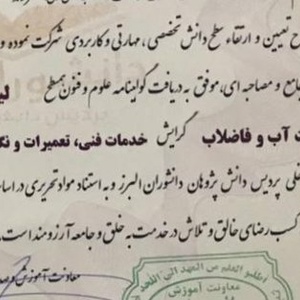 ح تعیین و ارتقاء سطح دانش تخصصی، مهارتی و کاربردی شرکت نموده و
جامع و مصاحبه ای، موفق به دریافت گواهینامه علوم و فنون همسطح لی
ت آب و فاضلاب گرایش خدمات فنی، تعمیرات و نگ
علمی پردیس دانش پژوهان دانشوران البرز و به استناد مواد تحریری در اسا
کسب رضای خالق و تلاش در خدمت به خلق و جامعه آرزومند است.
معاونت آموزش
اطلبو العلم من المهد الی اللحد
معاونت آموزش